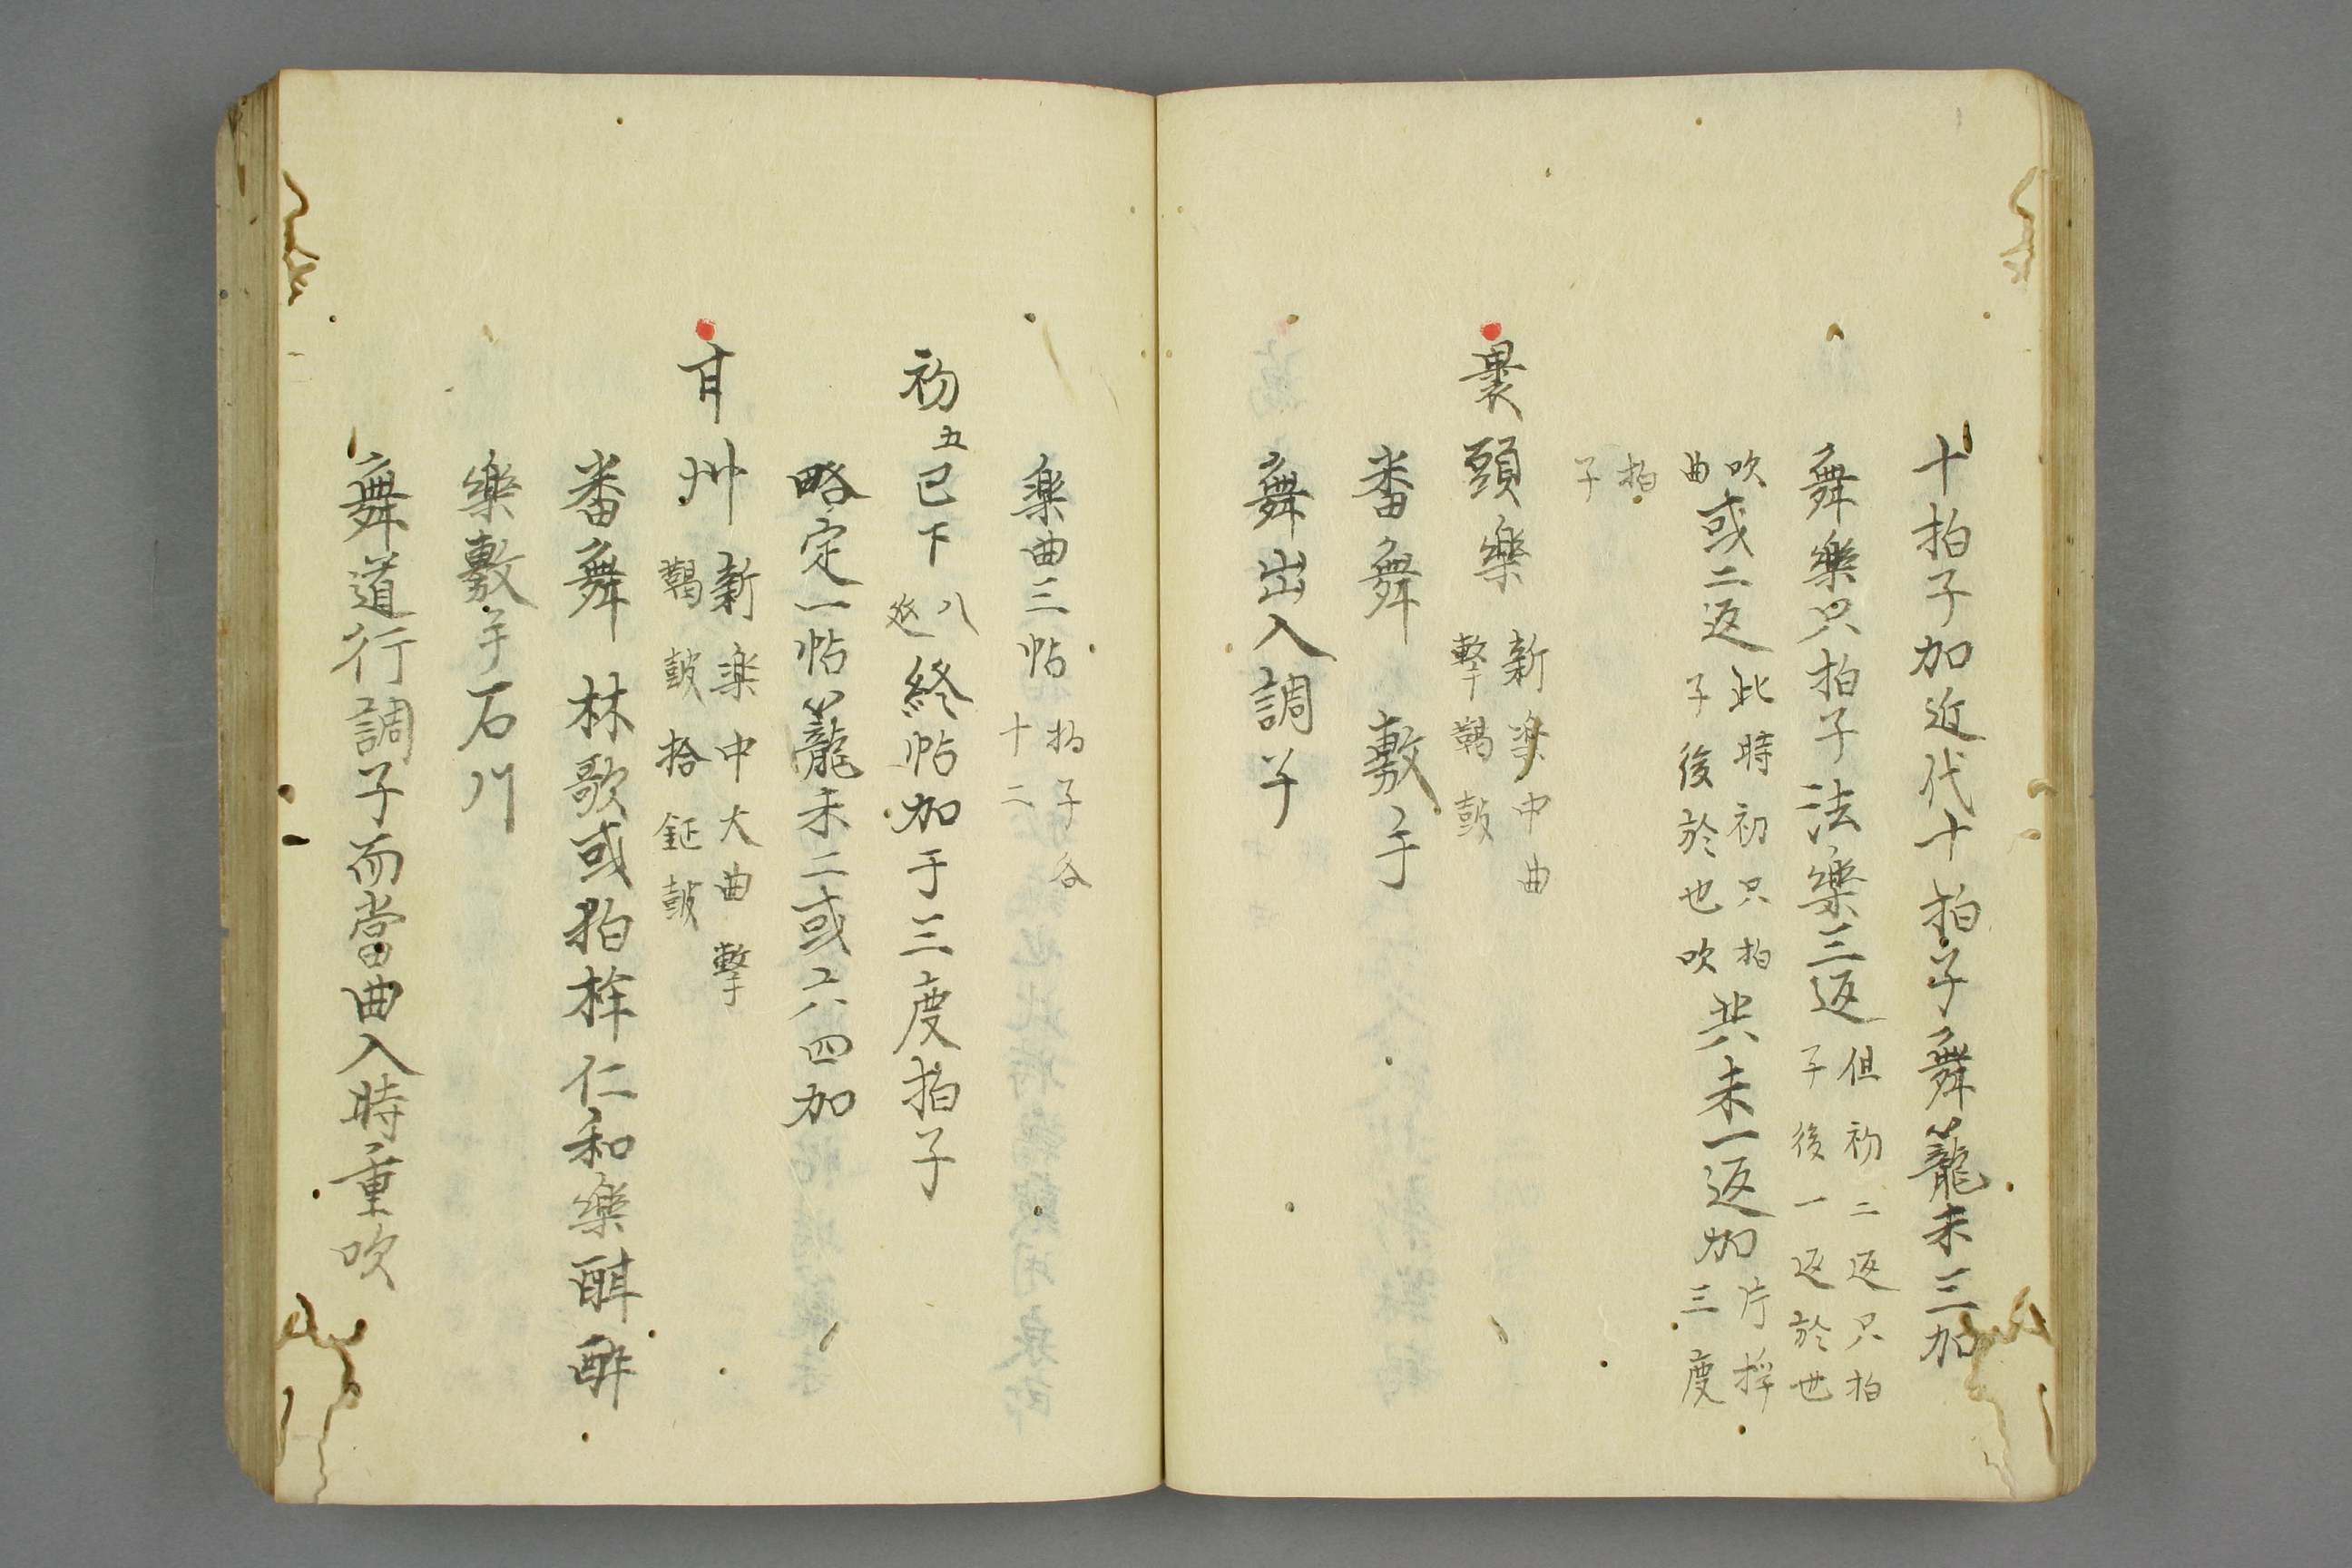 十拍子加近代十拍子舞籠末三加
舞樂只拍子法樂三返 但初二返只拍
子後一返於世
吹
曲 或二返 此時初只拍
子後於也吹 共末一返加 片桴
三度
拍
子
裹頭樂 新楽中曲
撃鞨鼓
番舞 敷手
舞出入調子
楽曲三帖 拍子各
十二
初五已下 八
終帖加于三度拍子
略定一帖籠末二或六四加
甘州 新楽中大曲撃
鞨鼓拾鉦鼓
番舞 林歌或狛桙仁和樂酣酔
樂敷手石川
舞道行調子而當曲入時重吹